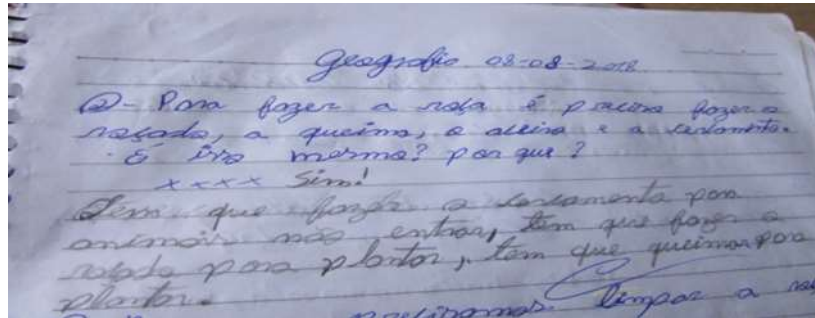 Geografia 08-08-2018
Q- Para fazer a rosa é preciso fazer o
rosado, a queima, o aceiro e a cercamento.
É isso mesmo? por que?
xxxx Sim!
Tem que fazer o cercamento para
animais não entrar, tem que fazer o
rosado para plantar, tem que queimar para
plantar.
precisamos limpar a